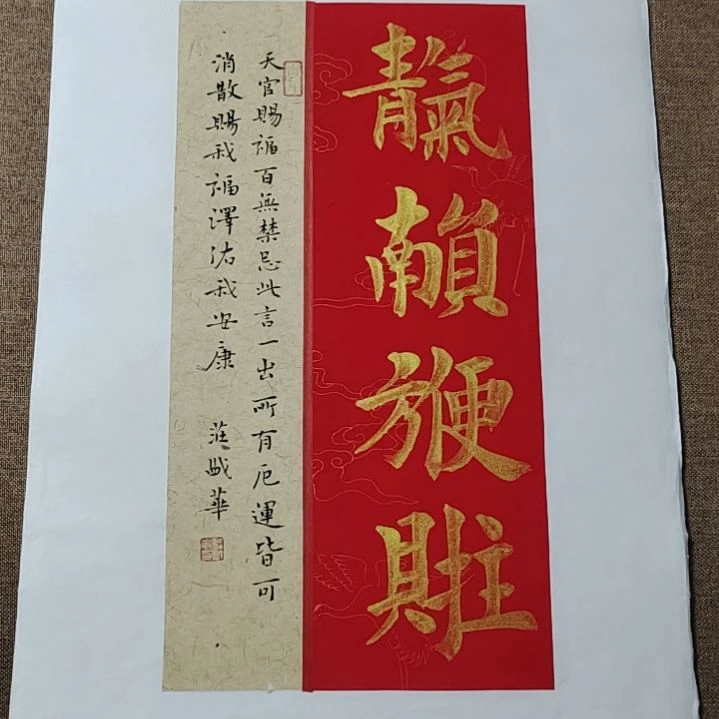 靝
天官賜福百無禁忌此言一出所有厄運皆可
消散賜我福澤佑我安康 莊 華